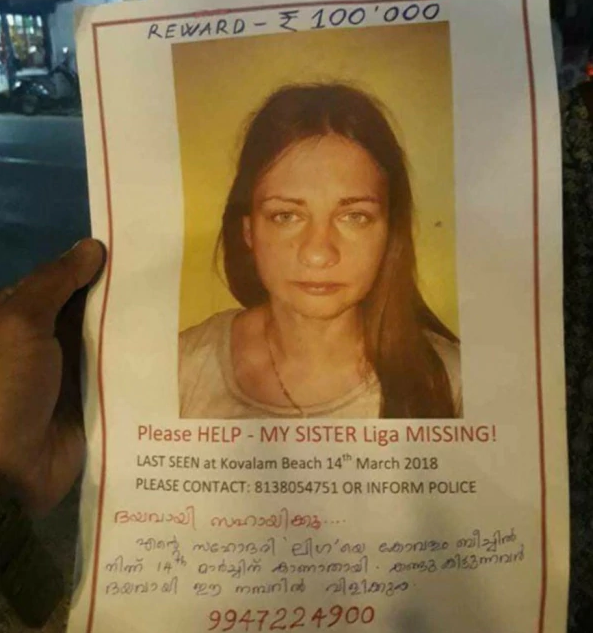 REWARD - ₹ 100'000
Please HELP - MY SISTER Liga MISSING!
LAST SEEN at Kovalam Beach 14th March 2018
PLEASE CONTACT: 8138054751 OR INFORM POLICE
ദയവായി സഹായിക്കൂ....
എന്റെ സഹോദരി 'ലിഗ'യെ കോവളം ബീച്ചിൽ
നിന്ന് 14th മാർച്ചിന് കാണാതായി. കണ്ടു കിട്ടുന്നവർ
ദയവായി ഈ നമ്പറിൽ വിളിക്കുക.
9947224900